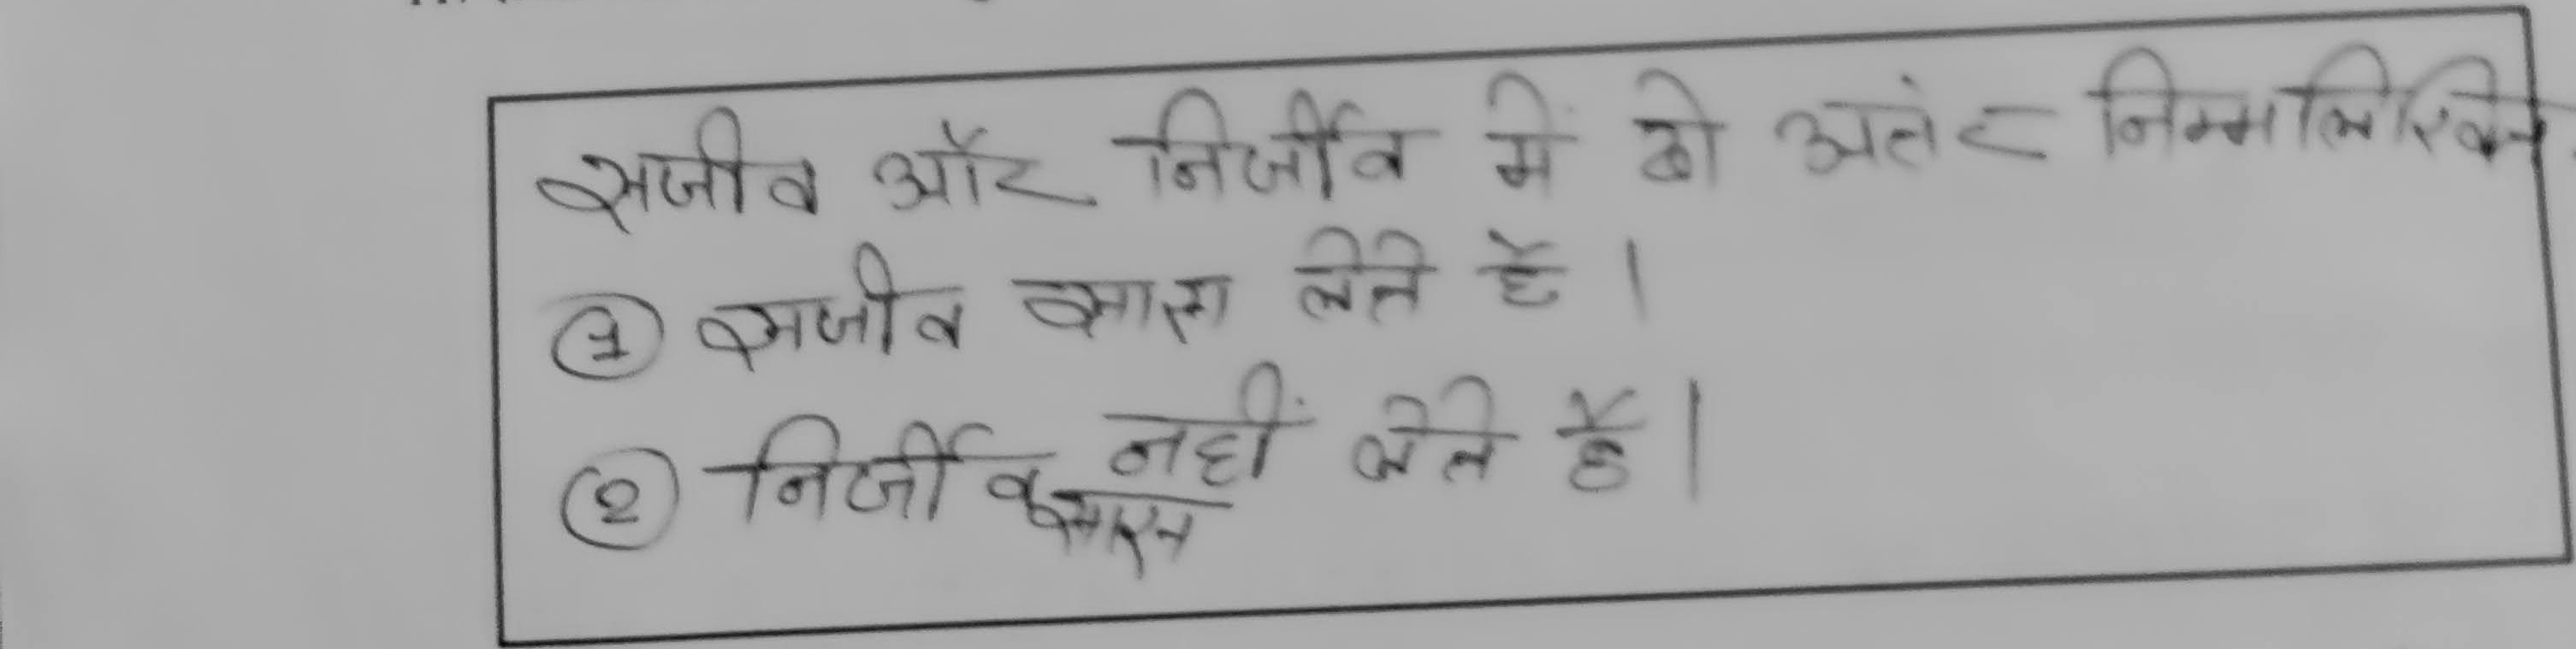 सजीव और निर्जीव में दो अतंर निम्नलिखित
① सजीव सास लेते है ।
② निर्जीव सास नहीं लेते है ।